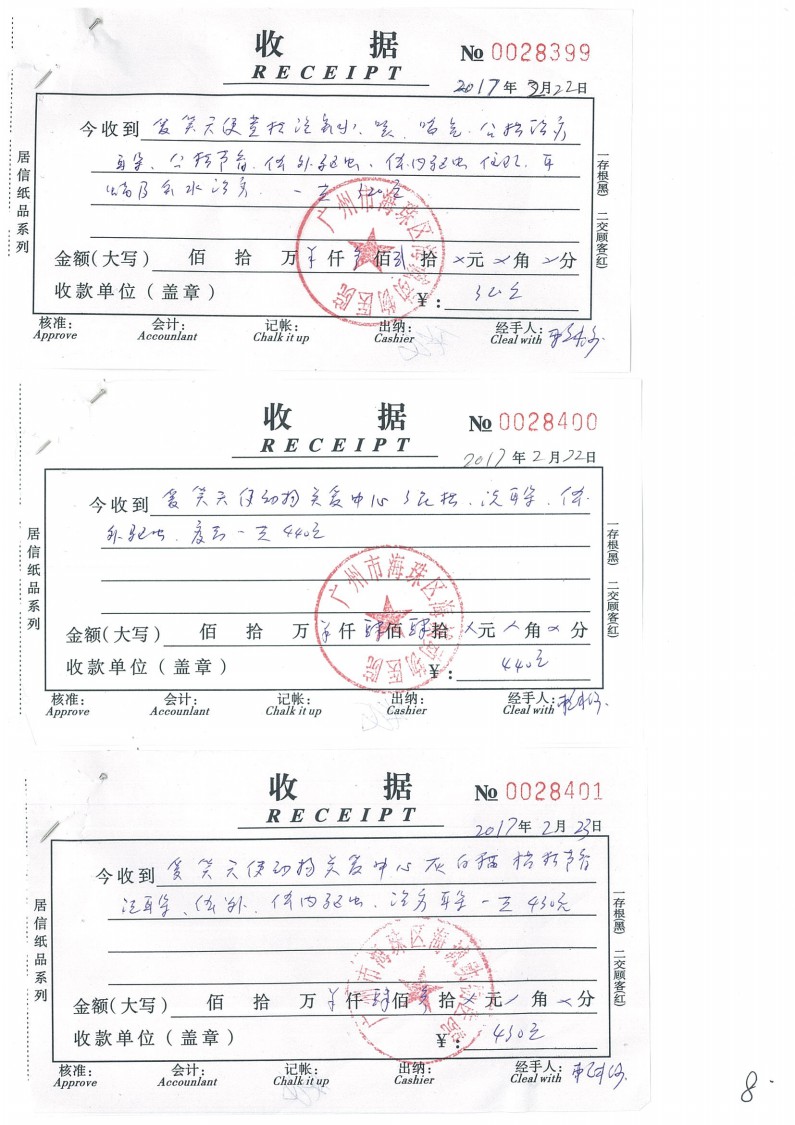 收 据
RECEIPT
№ 0028399
2017年2月22日
今收到
耳染、公猫节育、体外驱虫、体内驱虫
金额(大写) 佰 拾 万 仟 佰 拾 元 角 分
收款单位(盖章) ¥:
核准: 会计: 记帐: 出纳: 经手人:
Approve Accounlant Chalk it up Cashier Cleal with
居信纸品系列
一存根(黑) 二交顾客(红)
广州市海珠区海 动物医院
收 据
RECEIPT
№ 0028400
2017年2月22日
今收到 爱笑天使动物关爱中心 洗耳染、体
外驱虫、 一共440元
金额(大写) 佰 拾 万 仟肆佰肆拾 元 角 分
收款单位(盖章) ¥: 440元
核准: 会计: 记帐: 出纳: 经手人:
Approve Accounlant Chalk it up Cashier Cleal with
居信纸品系列
一存根(黑) 二交顾客(红)
广州市海珠区海 动物医院
收 据
RECEIPT
№ 0028401
2017年2月23日
今收到 爱笑天使动物关爱中心 灰白猫 节育
耳染、体外、体内驱虫、治疗耳染 一共430元
金额(大写) 佰 拾 万 仟肆佰叁拾 元 角 分
收款单位(盖章) ¥: 430元
核准: 会计: 记帐: 出纳: 经手人:
Approve Accounlant Chalk it up Cashier Cleal with
居信纸品系列
一存根(黑) 二交顾客(红)
广州市海珠区海 动物医院
8